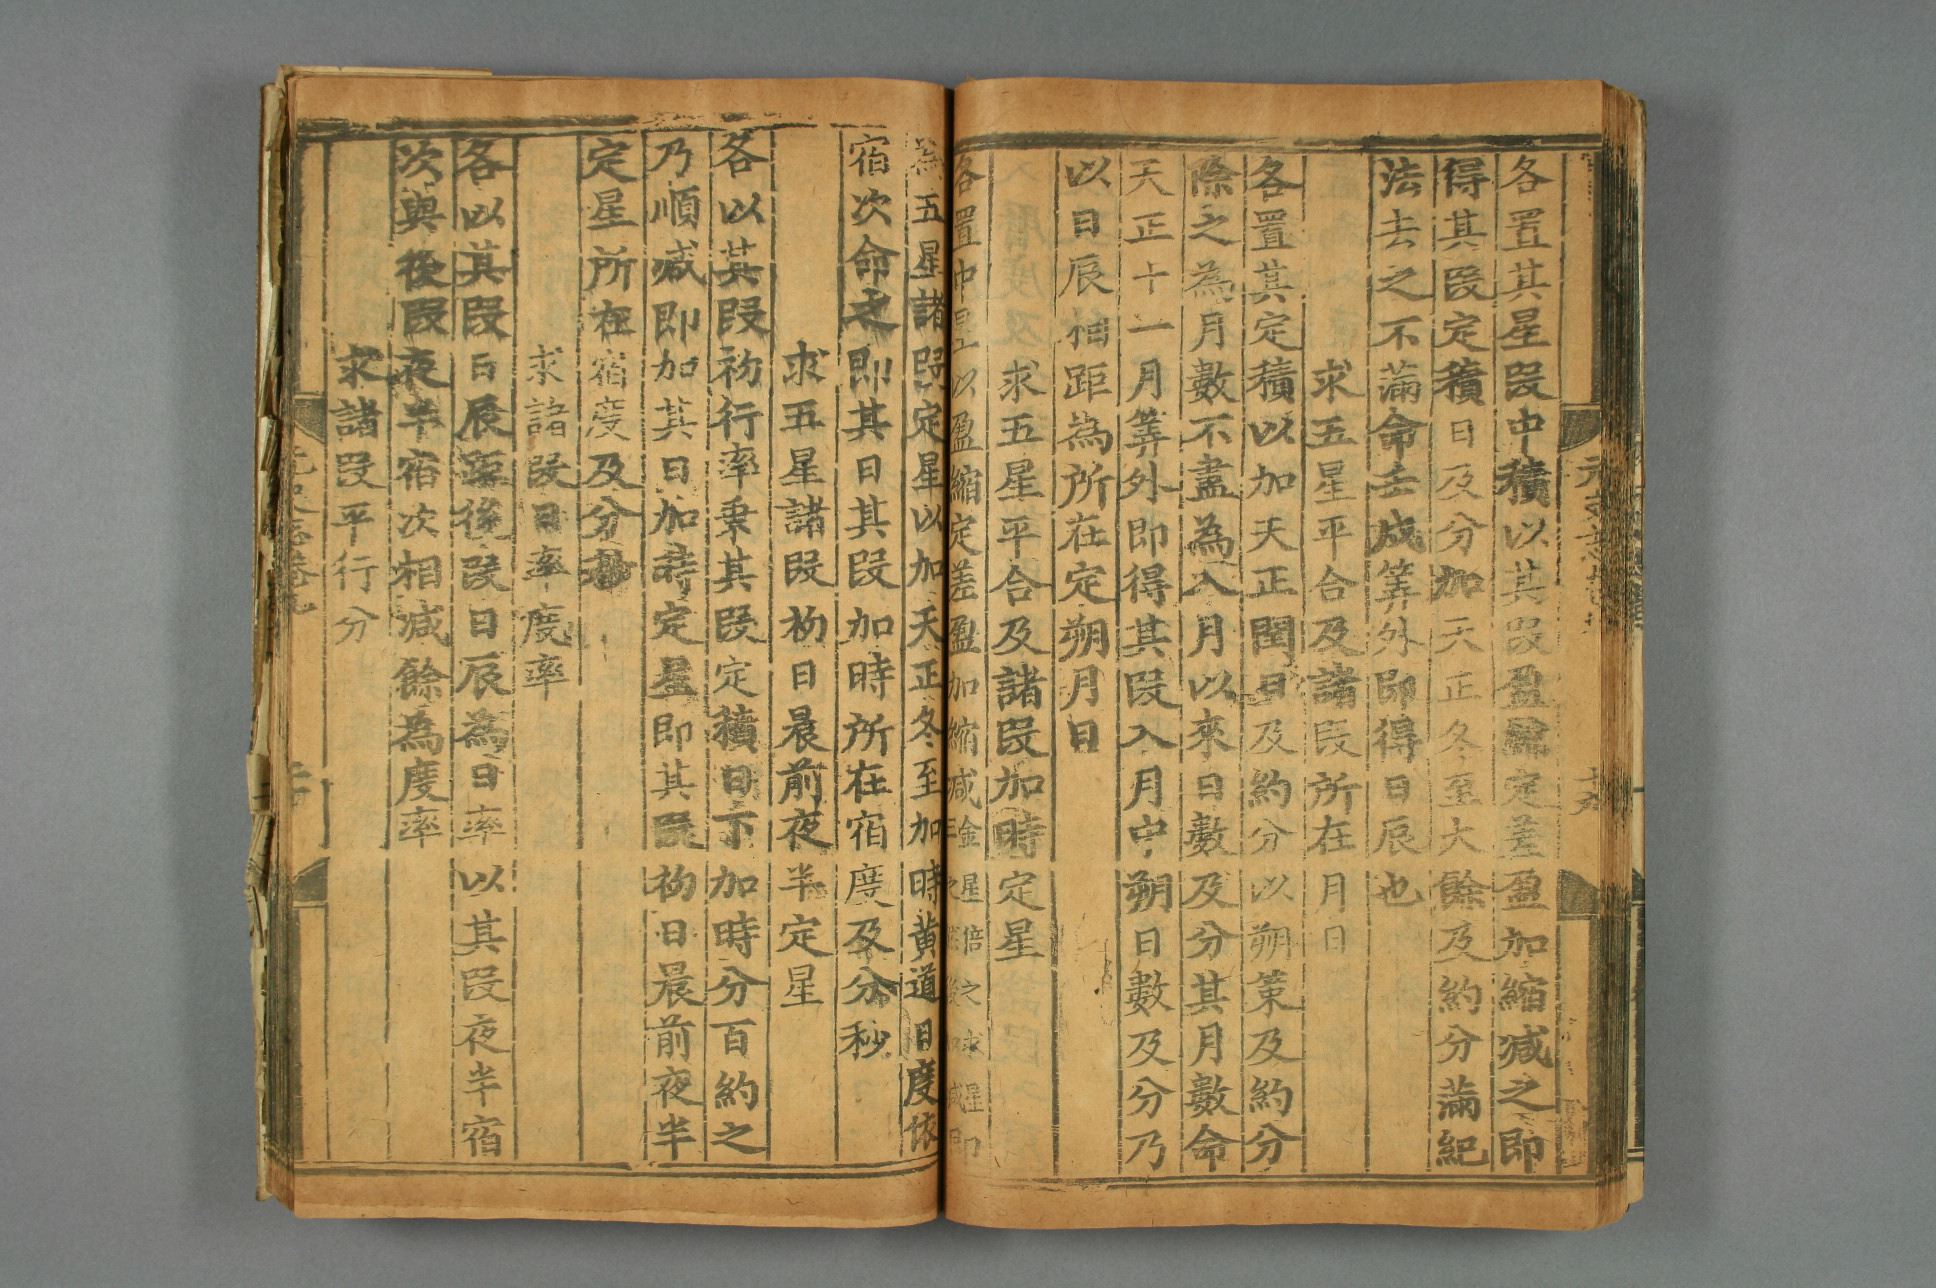 各置其星段中積以其段盈縮定差盈加縮減之即
得其段定積日及分加天正冬至大餘及約分滿紀
法去之不滿命壬戌筭外即得日辰也
求五星平合及諸段所在月日
各置其定積以加天正閏日及約分以朔策及約分
除之為月數不盡為入月以來日數及分其月數命
天正十一月筭外即得其段入月中朔日數及分乃
以日辰相距為所在定朔月日
求五星平合及諸段加時定星
各置中星以盈縮定差盈加縮減金星倍之
為五星諸段定星以加天正冬至加時黃道日度依
宿次命之即其日其段加時所在宿度及分秒
求五星諸段初日晨前夜半定星
各以其段初行率乘其段定積日下加時分百約之
乃順減即加其日加時定星即其段初日晨前夜半
定星所在宿度及分秒
求諸段日率度率
各以其段日辰距後段日辰為日率以其段夜半宿
次與後段夜半宿次相減餘為度率
求諸段平行分